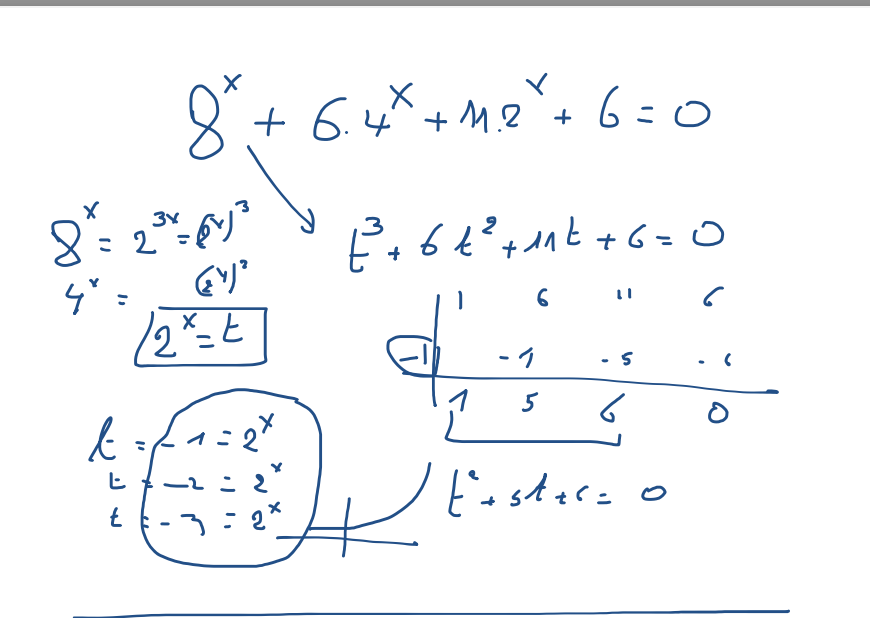 8^x + 6.4^x + 11.2^x + 6 = 0
8^x = 2^{3x} = (2^x)^3
t^3 + 6t^2 + 11t + 6 = 0
4^x = (2^x)^2
2^x = t
1 6 11 6
-1 -1 -5 -6
1 5 6 0
t = -1 = 2^x
t = -2 = 2^x
t = -3 = 2^x
t^2 + 5t + 6 = 0